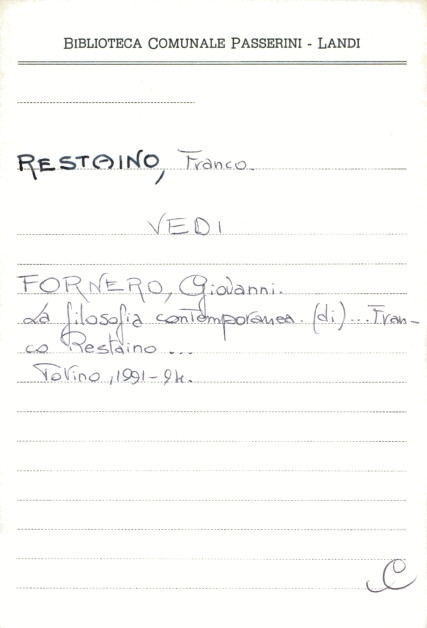 BIBLIOTECA COMUNALE PASSERINI - LANDI
RESTAINO, Franco.
VEDI
FORNERO, Giovanni.
La filosofia contemporanea. (di)... Fran-
co Restaino ...
Torino, 1991-94.
C